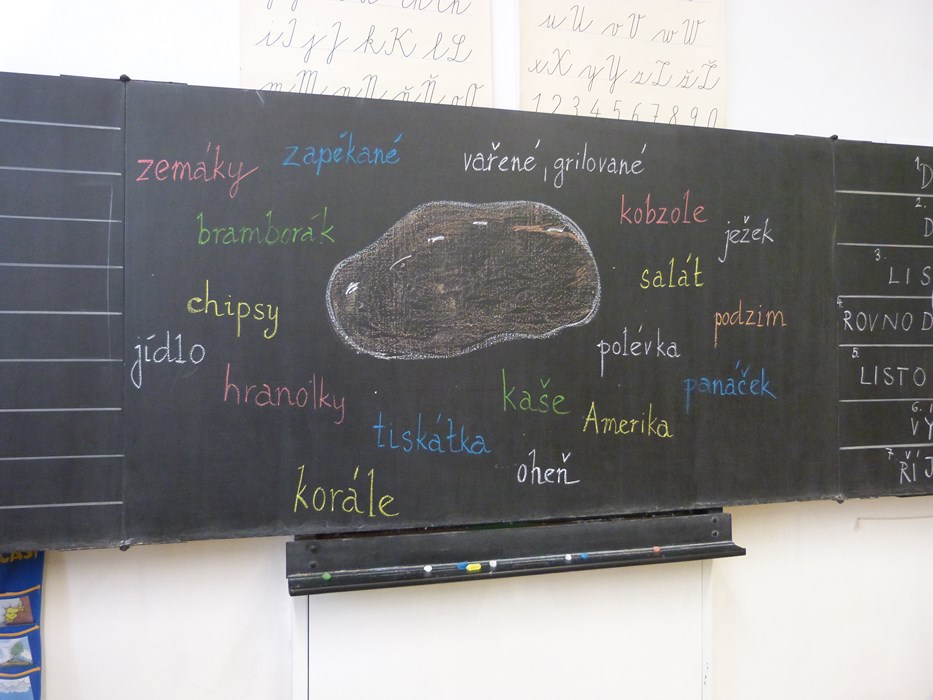 i I j J k K l L
m M n N ň Ň o O
u U v V w W
x X y Y z Z ž Ž
1 2 3 4 5 6 7 8 9 0
zemáky
zapékané
vařené, grilované
bramborák
kobzole
ježek
salát
chipsy
podzim
jídlo
polévka
hranolky
kaše
panáček
Amerika
tiskátka
oheň
korále
1. D
2. D
3. LIS
4. ROVNO D
5. LISTO
6. VY
7. ŘÍJ